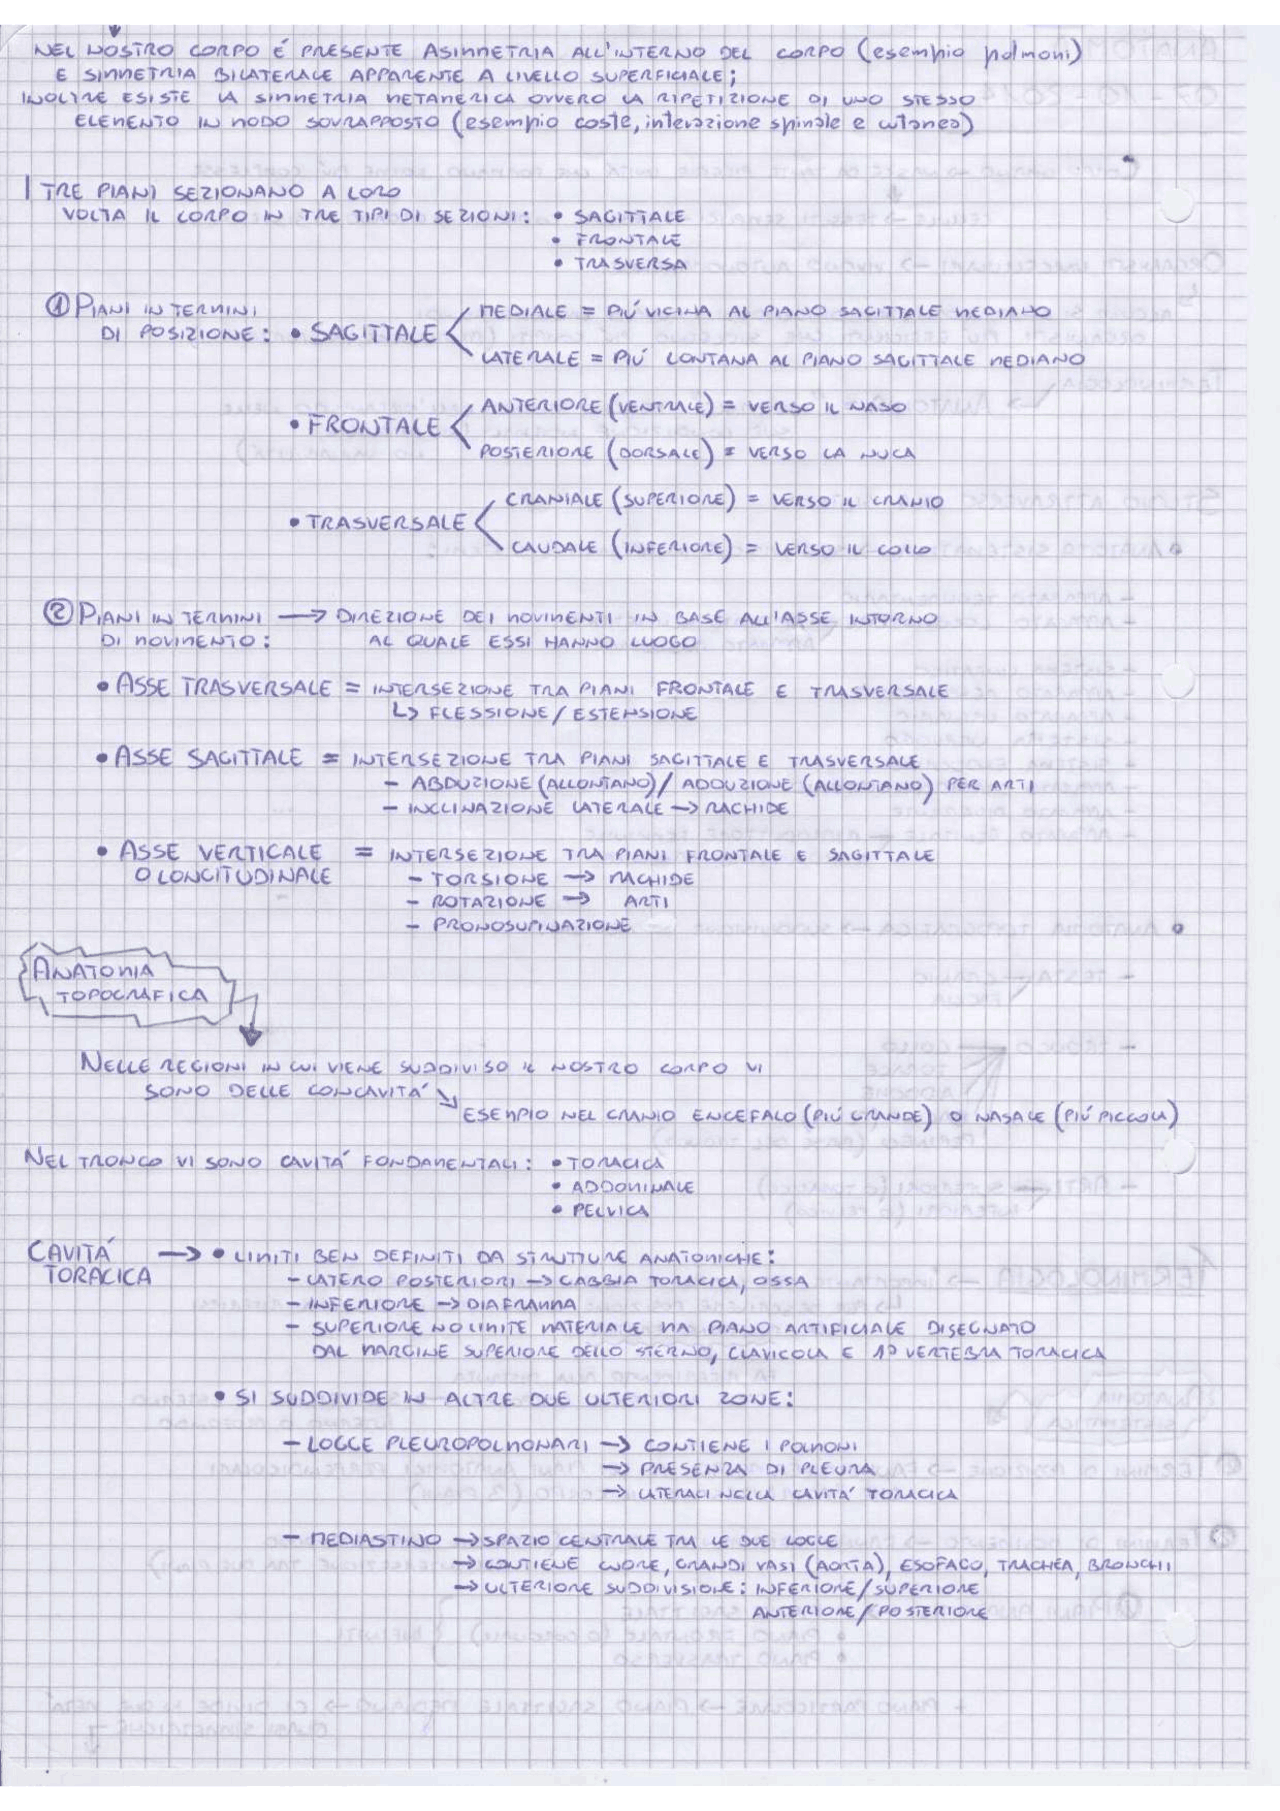 NEL NOSTRO CORPO É PRESENTE ASIMMETRIA ALL'INTERNO DEL CORPO (esempio polmoni)
E SIMMETRIA BILATERALE APPARENTE A LIVELLO SUPERFICIALE;
INOLTRE ESISTE LA SIMMETRIA METAMERICA OVVERO LA RIPETIZIONE DI UNO STESSO
ELEMENTO IN MODO SOVRAPPOSTO (esempio coste, interazione spinale e cutanea)
I TRE PIANI SEZIONANO A LORO
VOLTA IL CORPO IN TRE TIPI DI SEZIONI: • SAGITTALE
• FRONTALE
• TRASVERSA
① PIANI IN TERMINI
DI POSIZIONE: • SAGITTALE
MEDIALE = PIÚ VICINA AL PIANO SAGITTALE MEDIANO
LATERALE = PIÚ LONTANA AL PIANO SAGITTALE MEDIANO
• FRONTALE
ANTERIORE (VENTRALE) = VERSO IL NASO
POSTERIORE (DORSALE) = VERSO LA NUCA
• TRASVERSALE
CRANIALE (SUPERIORE) = VERSO IL CRANIO
CAUDALE (INFERIORE) = VERSO IL COLLO
② PIANI IN TERMINI → DIREZIONE DEI MOVIMENTI IN BASE ALL'ASSE INTORNO
DI MOVIMENTO: AL QUALE ESSI HANNO LUOGO
• ASSE TRASVERSALE = INTERSEZIONE TRA PIANI FRONTALE E TRASVERSALE
↳ FLESSIONE/ESTENSIONE
• ASSE SAGITTALE = INTERSEZIONE TRA PIANI SAGITTALE E TRASVERSALE
- ABDUZIONE (ALLONTANO)/ ADDUZIONE (ALLONTANO) PER ARTI
- INCLINAZIONE LATERALE → RACHIDE
• ASSE VERTICALE = INTERSEZIONE TRA PIANI FRONTALE E SAGITTALE
O LONGITUDINALE - TORSIONE → RACHIDE
- ROTAZIONE → ARTI
- PRONOSUPINAZIONE
ANATOMIA
TOPOGRAFICA
NELLE REGIONI IN CUI VIENE SUDDIVISO IL NOSTRO CORPO VI
SONO DELLE CONCAVITA'
ESEMPIO NEL CRANIO ENCEFALO (PIÚ GRANDE) O NASALE (PIÚ PICCOLA)
NEL TRONCO VI SONO CAVITA' FONDAMENTALI: • TORACICA
• ADDOMINALE
• PELVICA
CAVITA' → • LIMITI BEN DEFINITI DA STRUTTURE ANATOMICHE:
TORACICA - LATERO POSTERIORI → GABBIA TORACICA, OSSA
- INFERIORE → DIAFRAMMA
- SUPERIORE NO LIMITE MATERIALE MA PIANO ARTIFICIALE DISEGNATO
DAL MARGINE SUPERIORE DELLO STERNO, CLAVICOLA E 1º VERTEBRA TORACICA
• SI SUDDIVIDE IN ALTRE DUE ULTERIORI ZONE:
- LOGGE PLEUROPOLMONARI → CONTIENE I POLMONI
→ PRESENZA DI PLEURA
→ LATERALI NELLA CAVITA' TORACICA
- MEDIASTINO → SPAZIO CENTRALE TRA LE DUE LOGGE
→ CONTIENE CUORE, GRANDI VASI (AORTA), ESOFAGO, TRACHEA, BRONCHI
→ ULTERIORE SUDDIVISIONE: INFERIORE/SUPERIORE
ANTERIORE/POSTERIORE